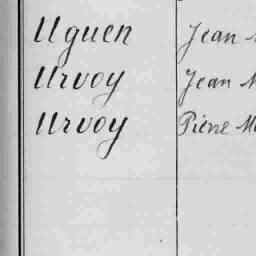 Uguen Jean
Urvoy Jean
Urvoy Pierre